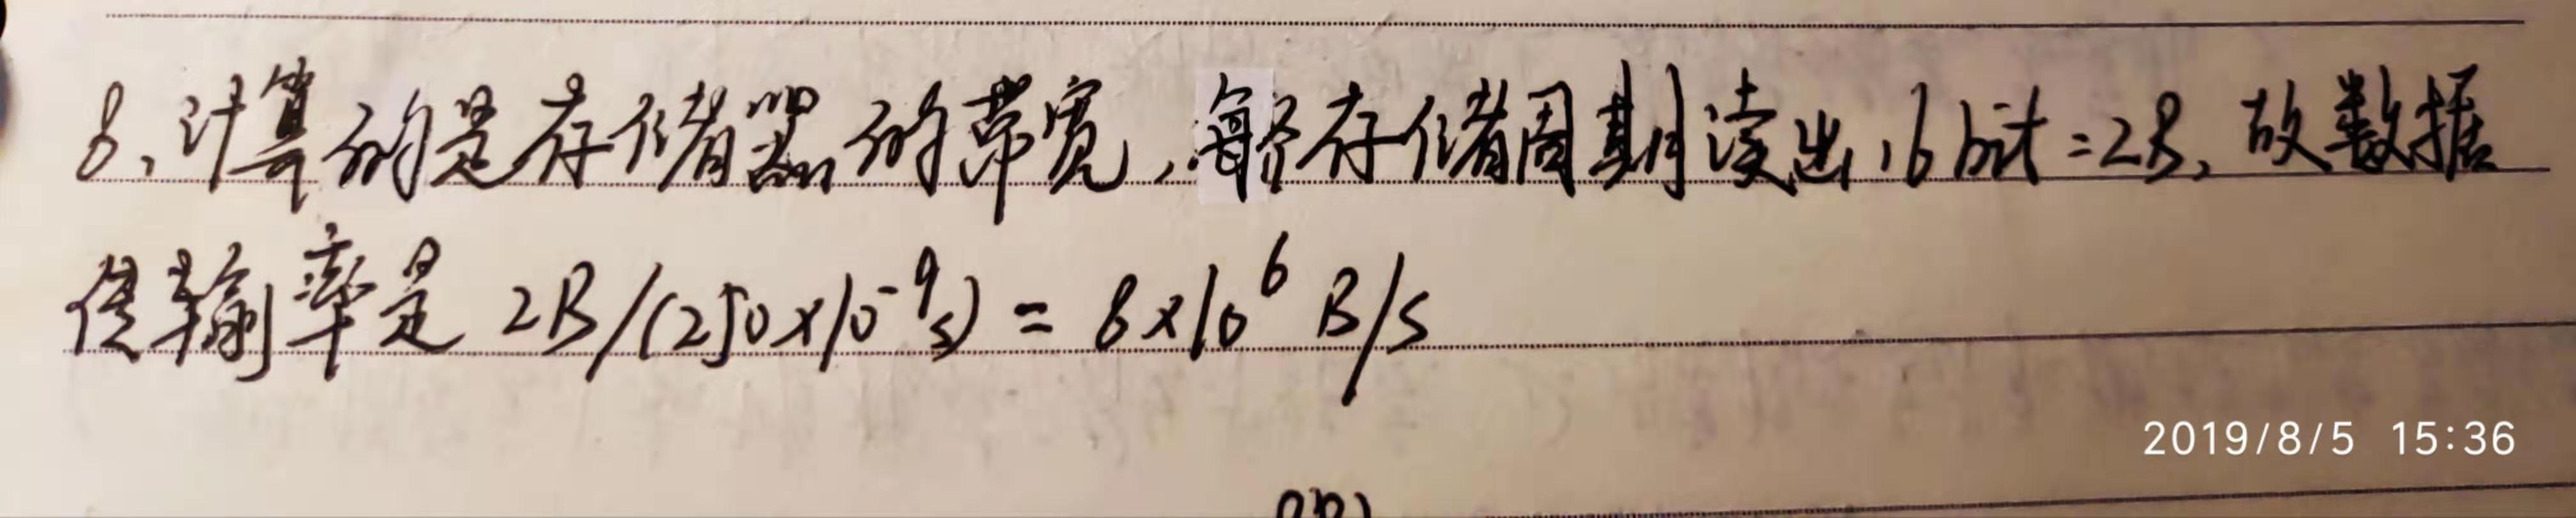 8、计算的是存储器的带宽,每个存储周期读出16bit=2B,故数据
传输率是 2B/(250×10⁻⁹s) = 8×10⁶ B/s
2019/8/5 15:36